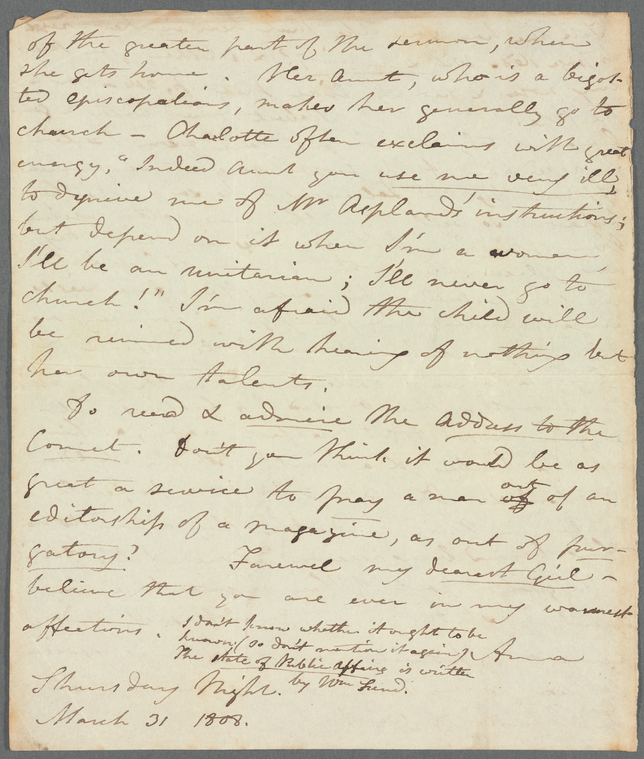 of the greater part of the sermon, when
she gets home. Her Aunt, who is a bigot-
ted episcopalian, makes her generally go to
church – Charlotte often exclaims with great
energy, "Indeed Aunt you use me very ill,
to deprive me of Mr Aspland's instructions;
but depend on it when I'm a woman,
I'll be an unitarian; I'll never go to
church!" I'm afraid the child will
be ruined with hearing of nothing but
her own talents.
Do read & admire the Address to the
Comet. Don't you think it would be as
great a service to pray a man out of an
editorship of a magazine, as out of pur-
gatory? Farewel my dearest Girl –
believe that you are ever in my warmest
affections.
I don't know whether it ought to be
known; (so don't mention it again);
The state of Public Affairs is written
by Wm
Anna
Thursday Night.
March 31 1808.